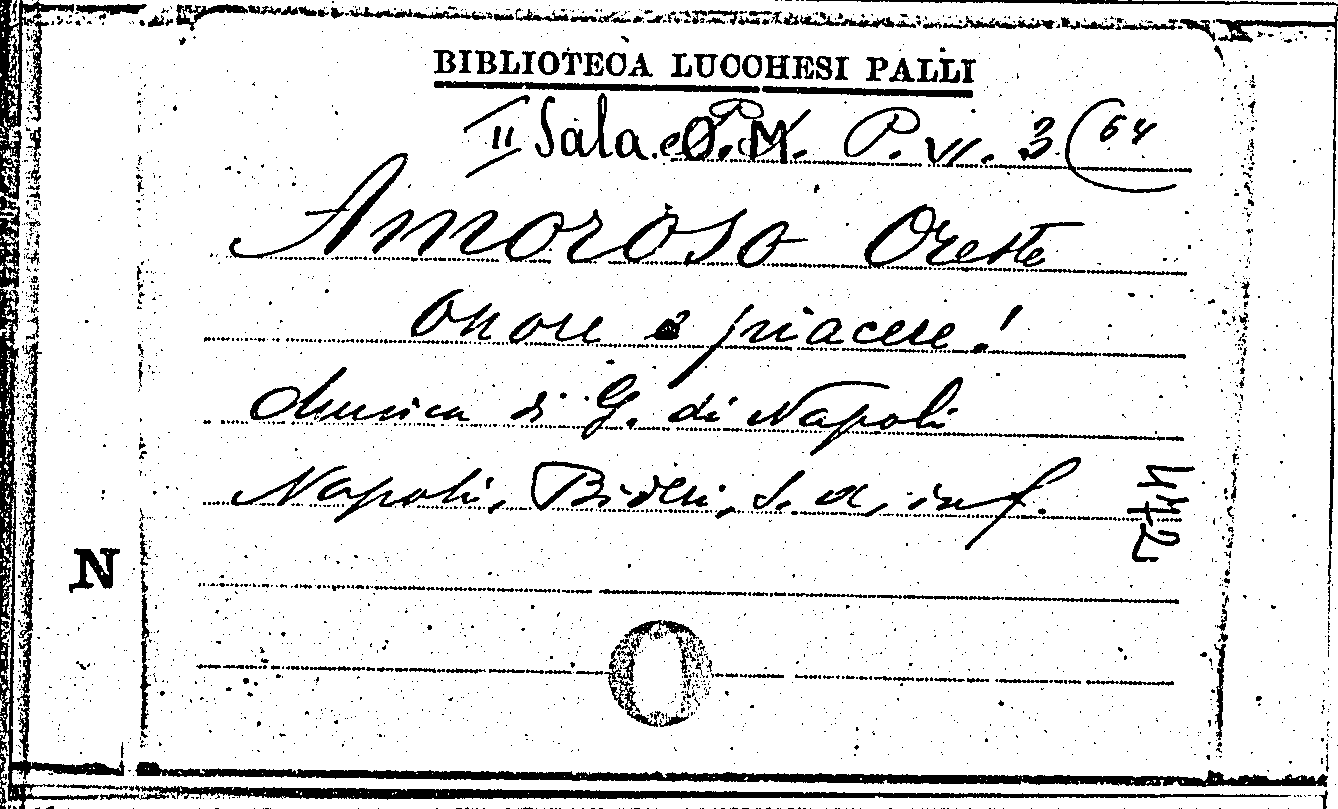 BIBLIOTECA LUCCHESI PALLI
II Sala P.M. P. VI. 3 (64
Amoroso Oreste
Onore e piacere!
Musica di G. di Napoli
Napoli, Bideri, s. d, in f.
N